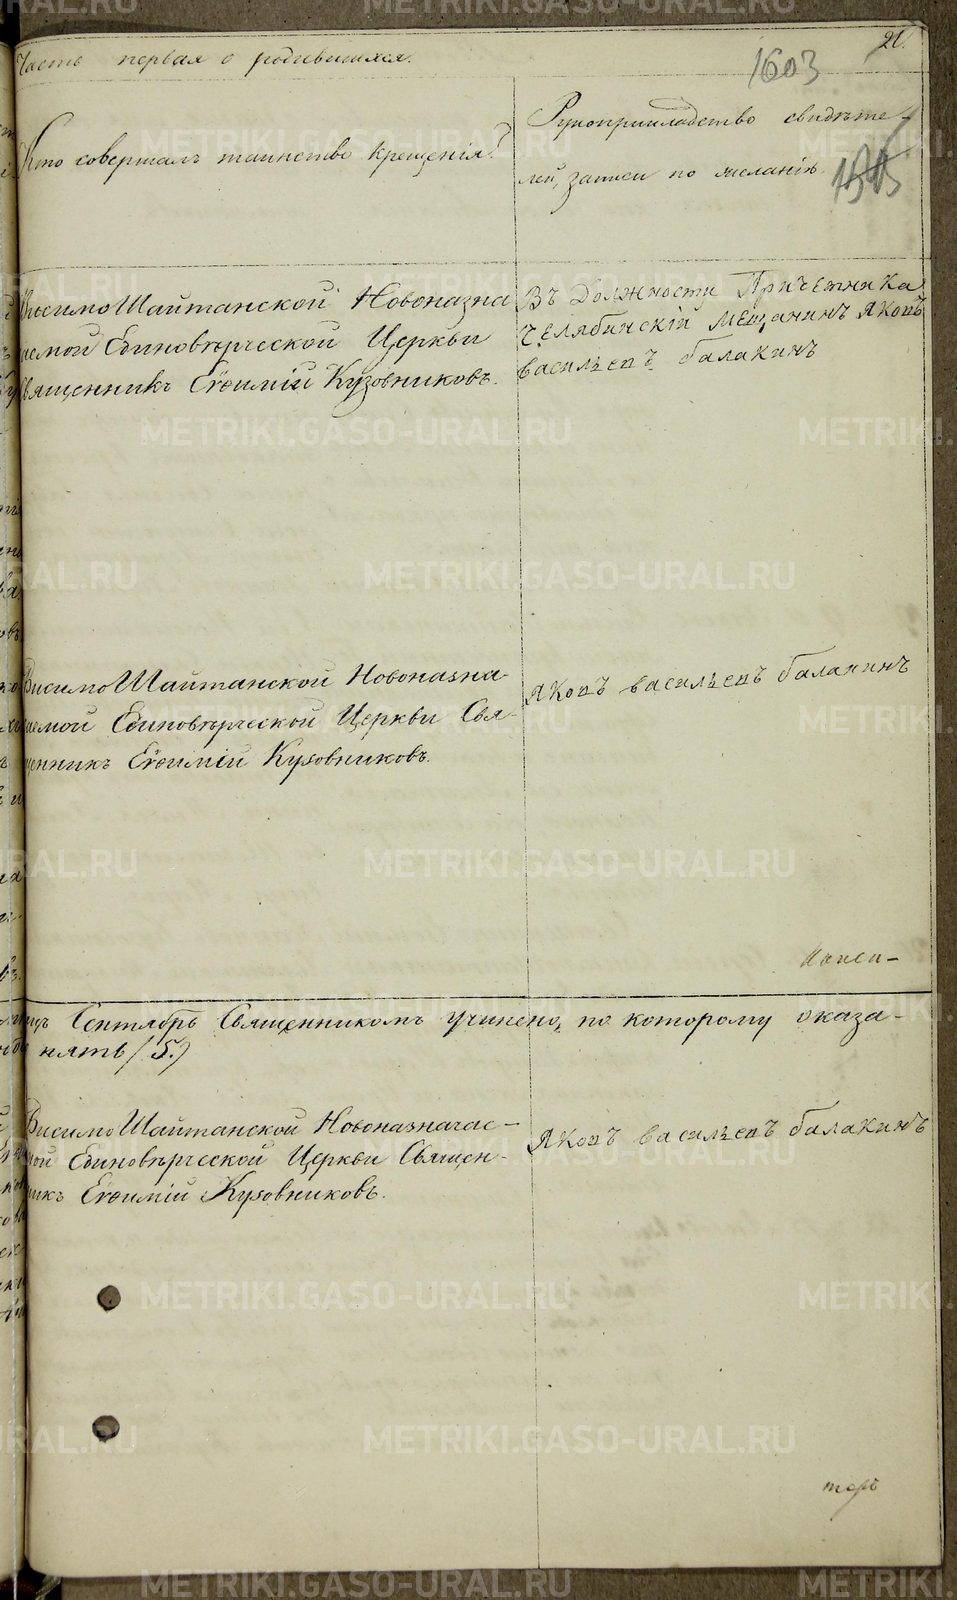 Часть первая о родившихся.
21.
1603
Кто совершалъ таинство крещенія?
Рукоприкладство свидѣте-
лей, записи по желанію.
Висимо Шайтанской Новоназна
чаемой Единовѣрческой Церкви
Священникъ Евѳимій Кузовниковъ.
Въ Должности Причетника
Челябинскій Мещанинъ Яковъ
васильевъ балакинъ
Висимо Шайтанской Новоназна-
чаемой Единовѣрческой Церкви Свя-
щенникъ Евѳимій Кузовниковъ.
Яковъ васильевъ балакинъ
сяцъ Сентябрь Священникомъ учинено, по которому оказа-
пять (5.)
Висимо Шайтанской Новоназначае-
мой Единовѣрческой Церкви Священ-
никъ Евѳимій Кузовниковъ.
Яковъ васильевъ балакинъ
METRIKI.GASO-URAL.RU